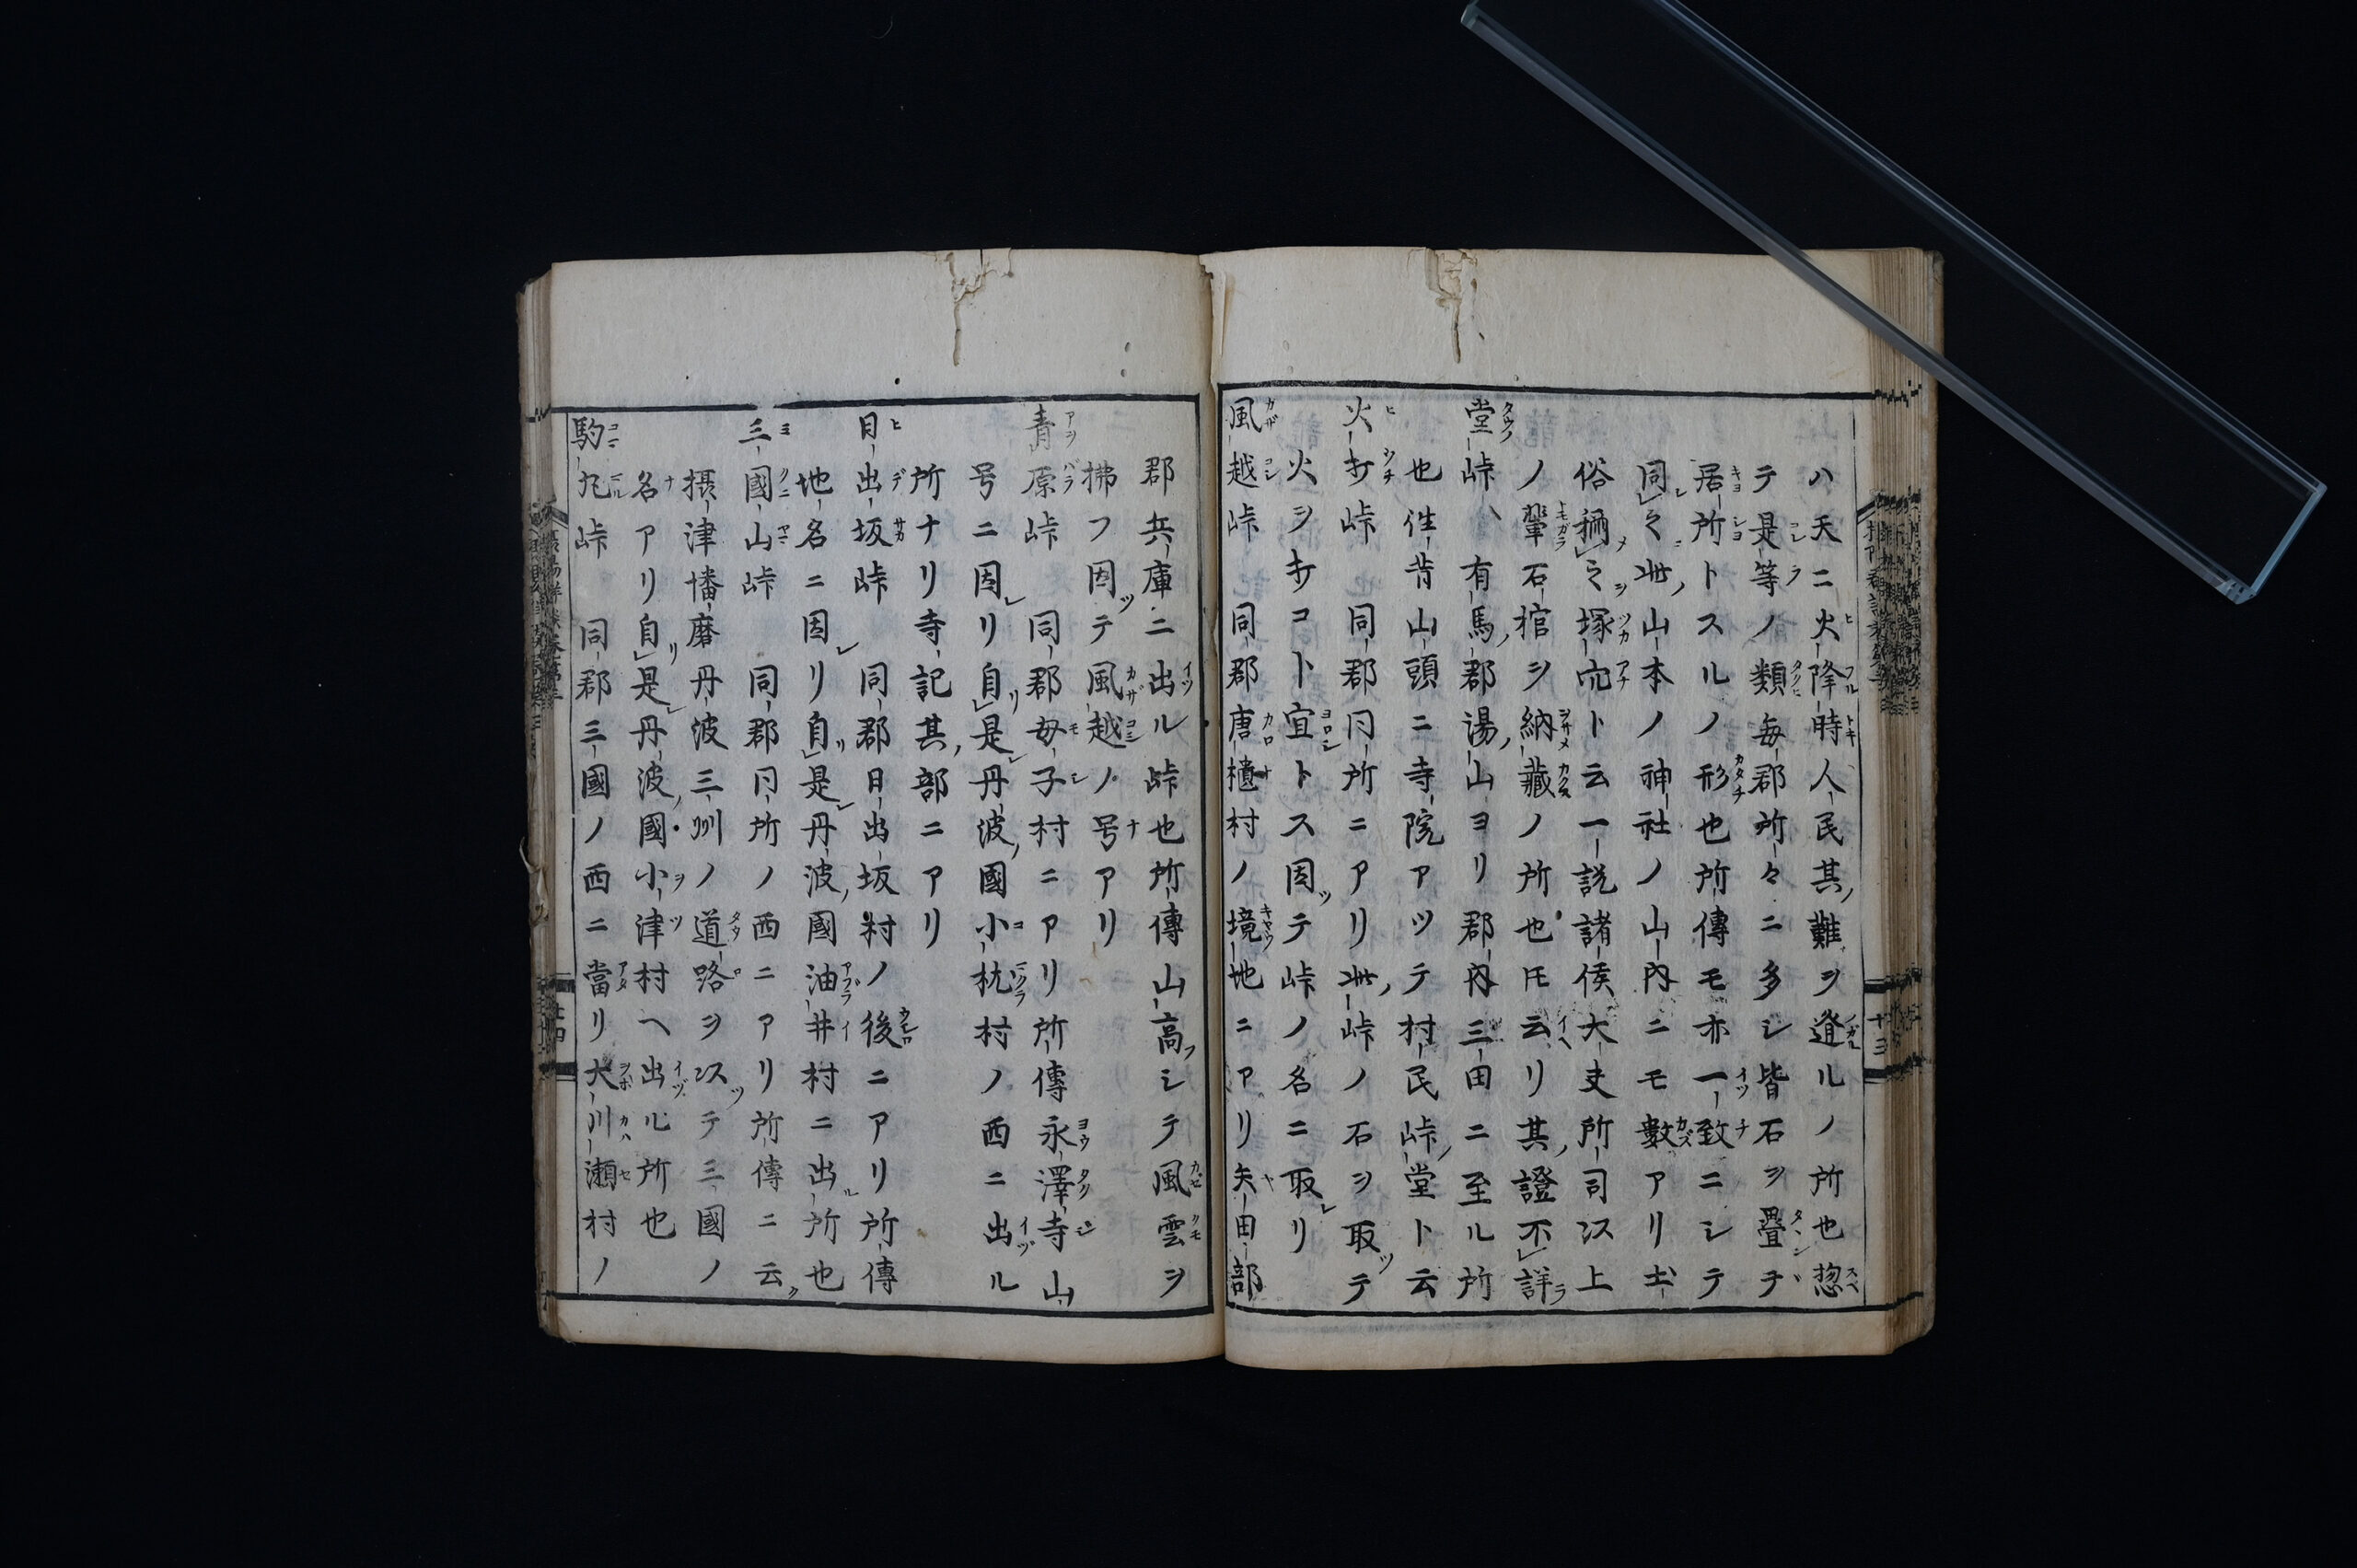 ハ天ニ火降時人民其難ヲ遁ルノ所也惣
テ是等ノ類毎郡所々ニ多シ皆石ヲ疊テ
居所トスルノ形也所傳モ亦一致ニシテ
同之此山本ノ神社ノ山内ニモ數アリ土
俗稱之塚穴ト云一説諸侯大夫所司以上
ノ輩石棺ヲ納藏ノ所也𪜈云リ其證不詳
堂峠 有馬郡湯山ヨリ郡内三田ニ至ル所
也徃昔山頭ニ寺院アツテ村民峠堂ト云
火打峠 同郡同所ニアリ此峠ノ石ヲ取テ
火ヲ打コト宜トス因テ峠ノ名ニ取リ
風越峠 同郡唐櫃村ノ境地ニアリ矢田部
郡兵庫ニ出ル峠也所傳山高シテ風雲ヲ
拂フ因テ風越ノ号アリ
青原峠 同郡母子村ニアリ所傳永澤寺山
号ニ因リ自是丹波國小枕村ノ西ニ出ル
所ナリ寺記其部ニアリ
日出坂峠 同郡日出坂村ノ後ニアリ所傳
地名ニ因リ自是丹波國油井村ニ出所也
三國山峠 同郡同所ノ西ニアリ所傳ニ云
攝津幡磨丹波三州ノ道路ヲ以テ三國ノ
名アリ自是丹波國小津村ヘ出ル所也
駒九峠 同郡三國ノ西ニ當リ大川瀬村ノ